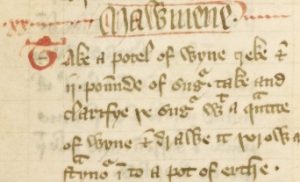 Mawmene.
Take a potel of wyne greke ⁊
ii. pounde of sugʳ. take and
clarifye þe sugʳ wᵗ a qᵃntite
of wyne ⁊ drawe it þorow a
stynoʳ ī to a pot of erthe.